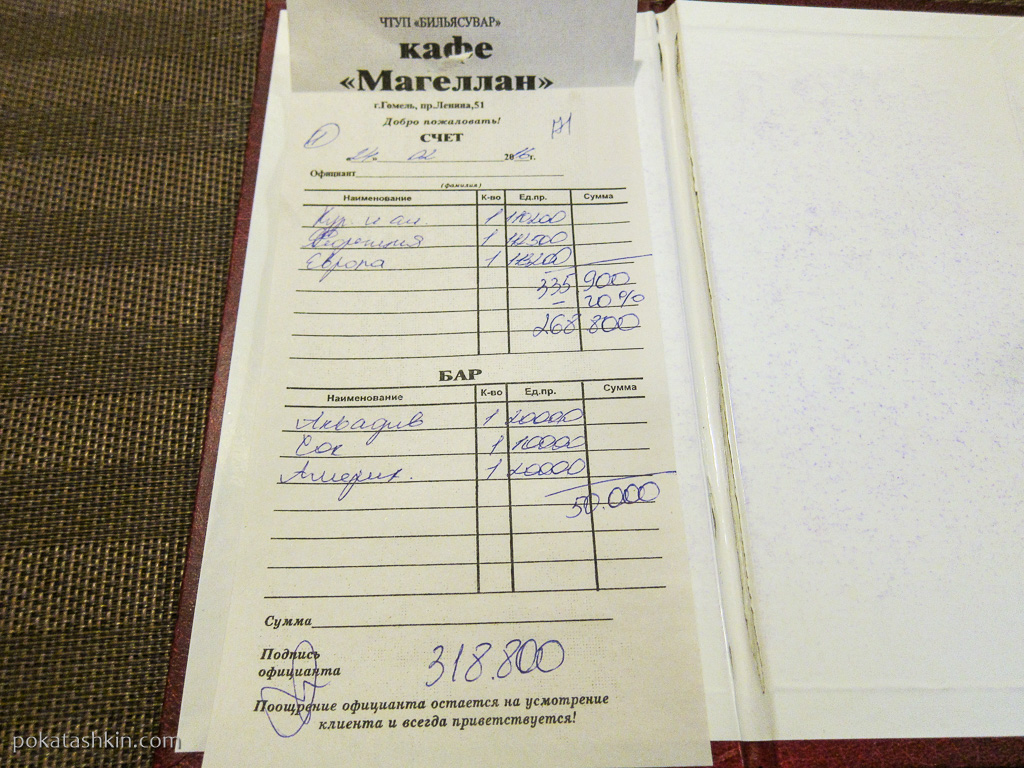 ЧТУП «БИЛЬЯСУВАР»
кафе
«Магеллан»
г.Гомель, пр.Ленина,51
Добро пожаловать!
СЧЕТ
02 2016г.
Официант
(фамилия)
Наименование К-во Ед.пр. Сумма
1
1 112500
Европа 1
335 900
- 20%
268 800
БАР
Наименование К-во Ед.пр. Сумма
Аквадив 1 20000
Сок 1 10000
Америк. 1 20000
50.000
Сумма
Подпись
официанта
318.800
Поощрение официанта остается на усмотрение
клиента и всегда приветствуется!
pokatashkin.com